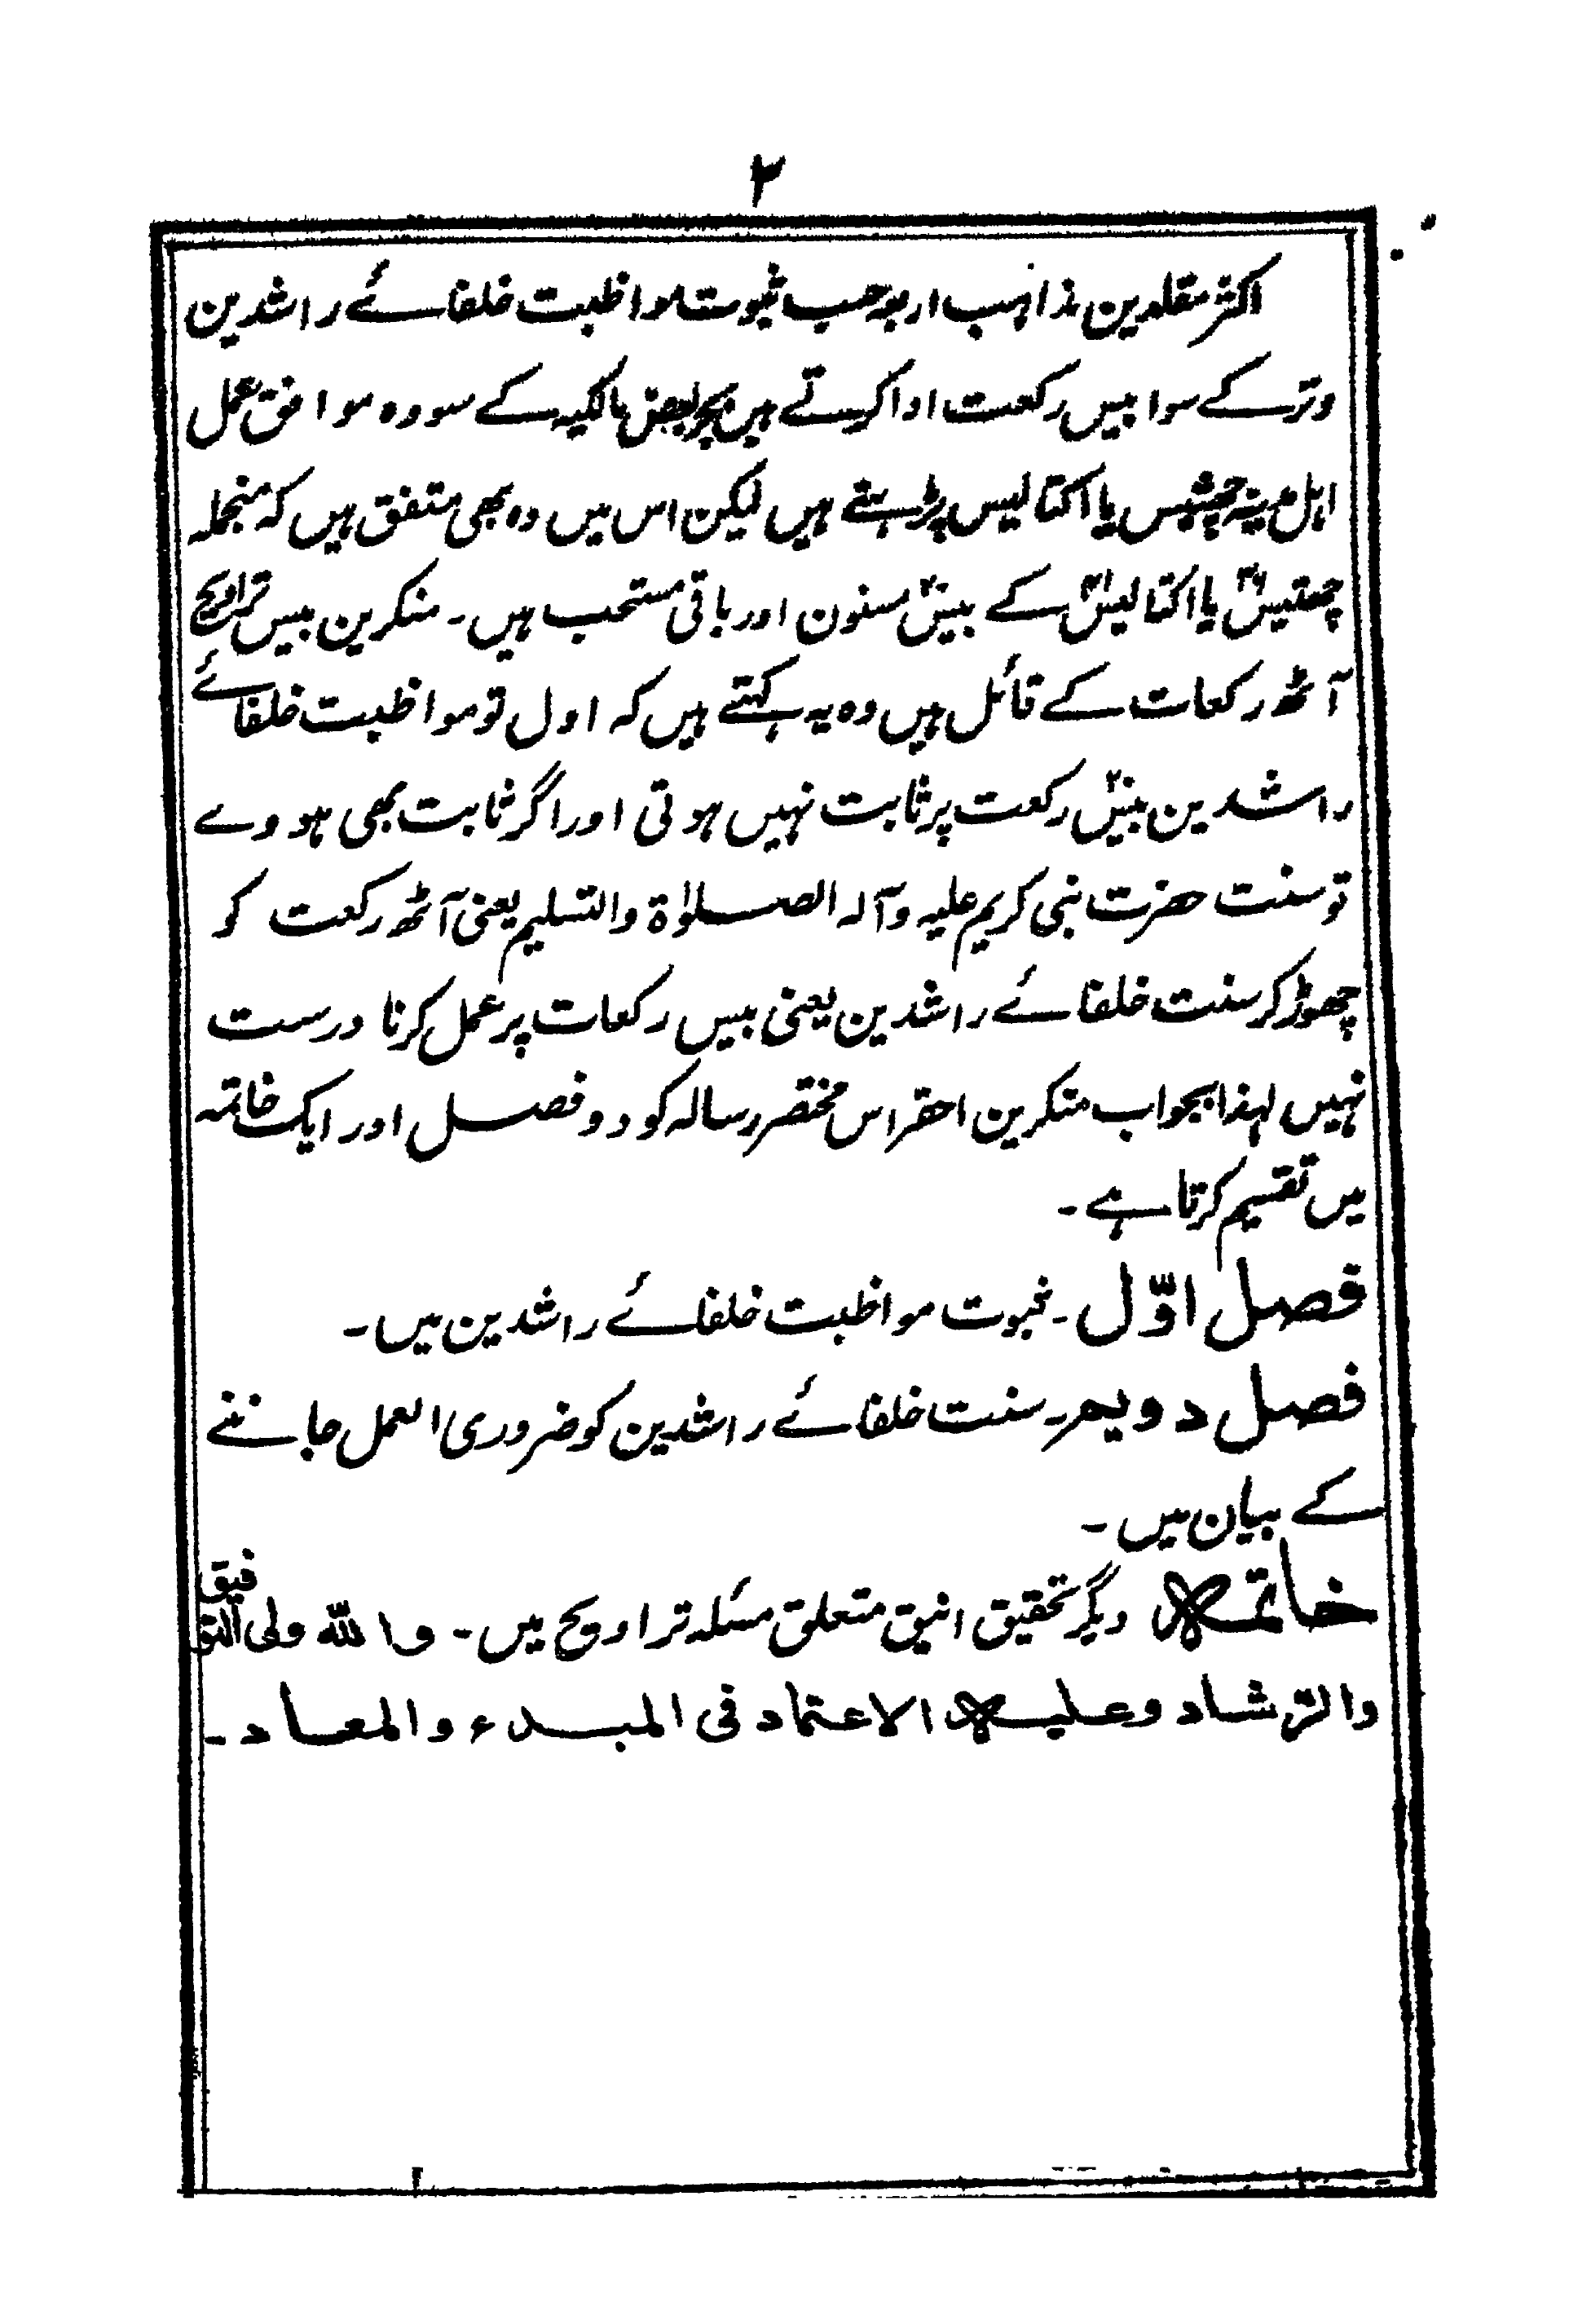 ۲
اکثر مقلدین مذاہب اربعہ حسب ثبوت مواظبت خلفائے راشدین
وتر کے سوا بیس رکعت ادا کرتے ہیں بجز بعض مالکیہ کے سو وہ موافق عمل
اہل مدینہ چھتیس یا اکتالیس پڑہتے ہیں لیکن اس میں وہ بھی متفق ہیں کہ منجملہ
چھتیس۳۶ یا اکتالیس۴۱ کے بیس۲۰ مسنون اور باقی مستحب ہیں۔ منکرین بیس تراویح
آٹھ رکعات کے قائل ہیں وہ یہ کہتے ہیں کہ اول تو مواظبت خلفائے
راشدین بیس۲۰ رکعت پر ثابت نہیں ہوتی اور اگر ثابت بھی ہووے
تو سنت حضرت نبی کریم علیہ وآلہ الصلوٰۃ والتسلیم یعنی آٹھ رکعت کو
چھوڑ کر سنت خلفائے راشدین یعنی بیس رکعات پر عمل کرنا درست
نہیں لہذا بجواب منکرین احقر اس مختصر رسالہ کو دو فصل اور ایک خاتمہ
میں تقسیم کرتا ہے۔
فصل اوّل۔ ثبوت مواظبت خلفائے راشدین میں۔
فصل دویم۔ سنت خلفائے راشدین کو ضروری العمل جاننے
کے بیان میں۔
خاتمہ دیگر تحقیق انیق متعلق مسئلہ تراویح میں۔ واللہ ولی التوفیق
والرشاد وعلیہ الاعتماد فی المبدء والمعاد۔